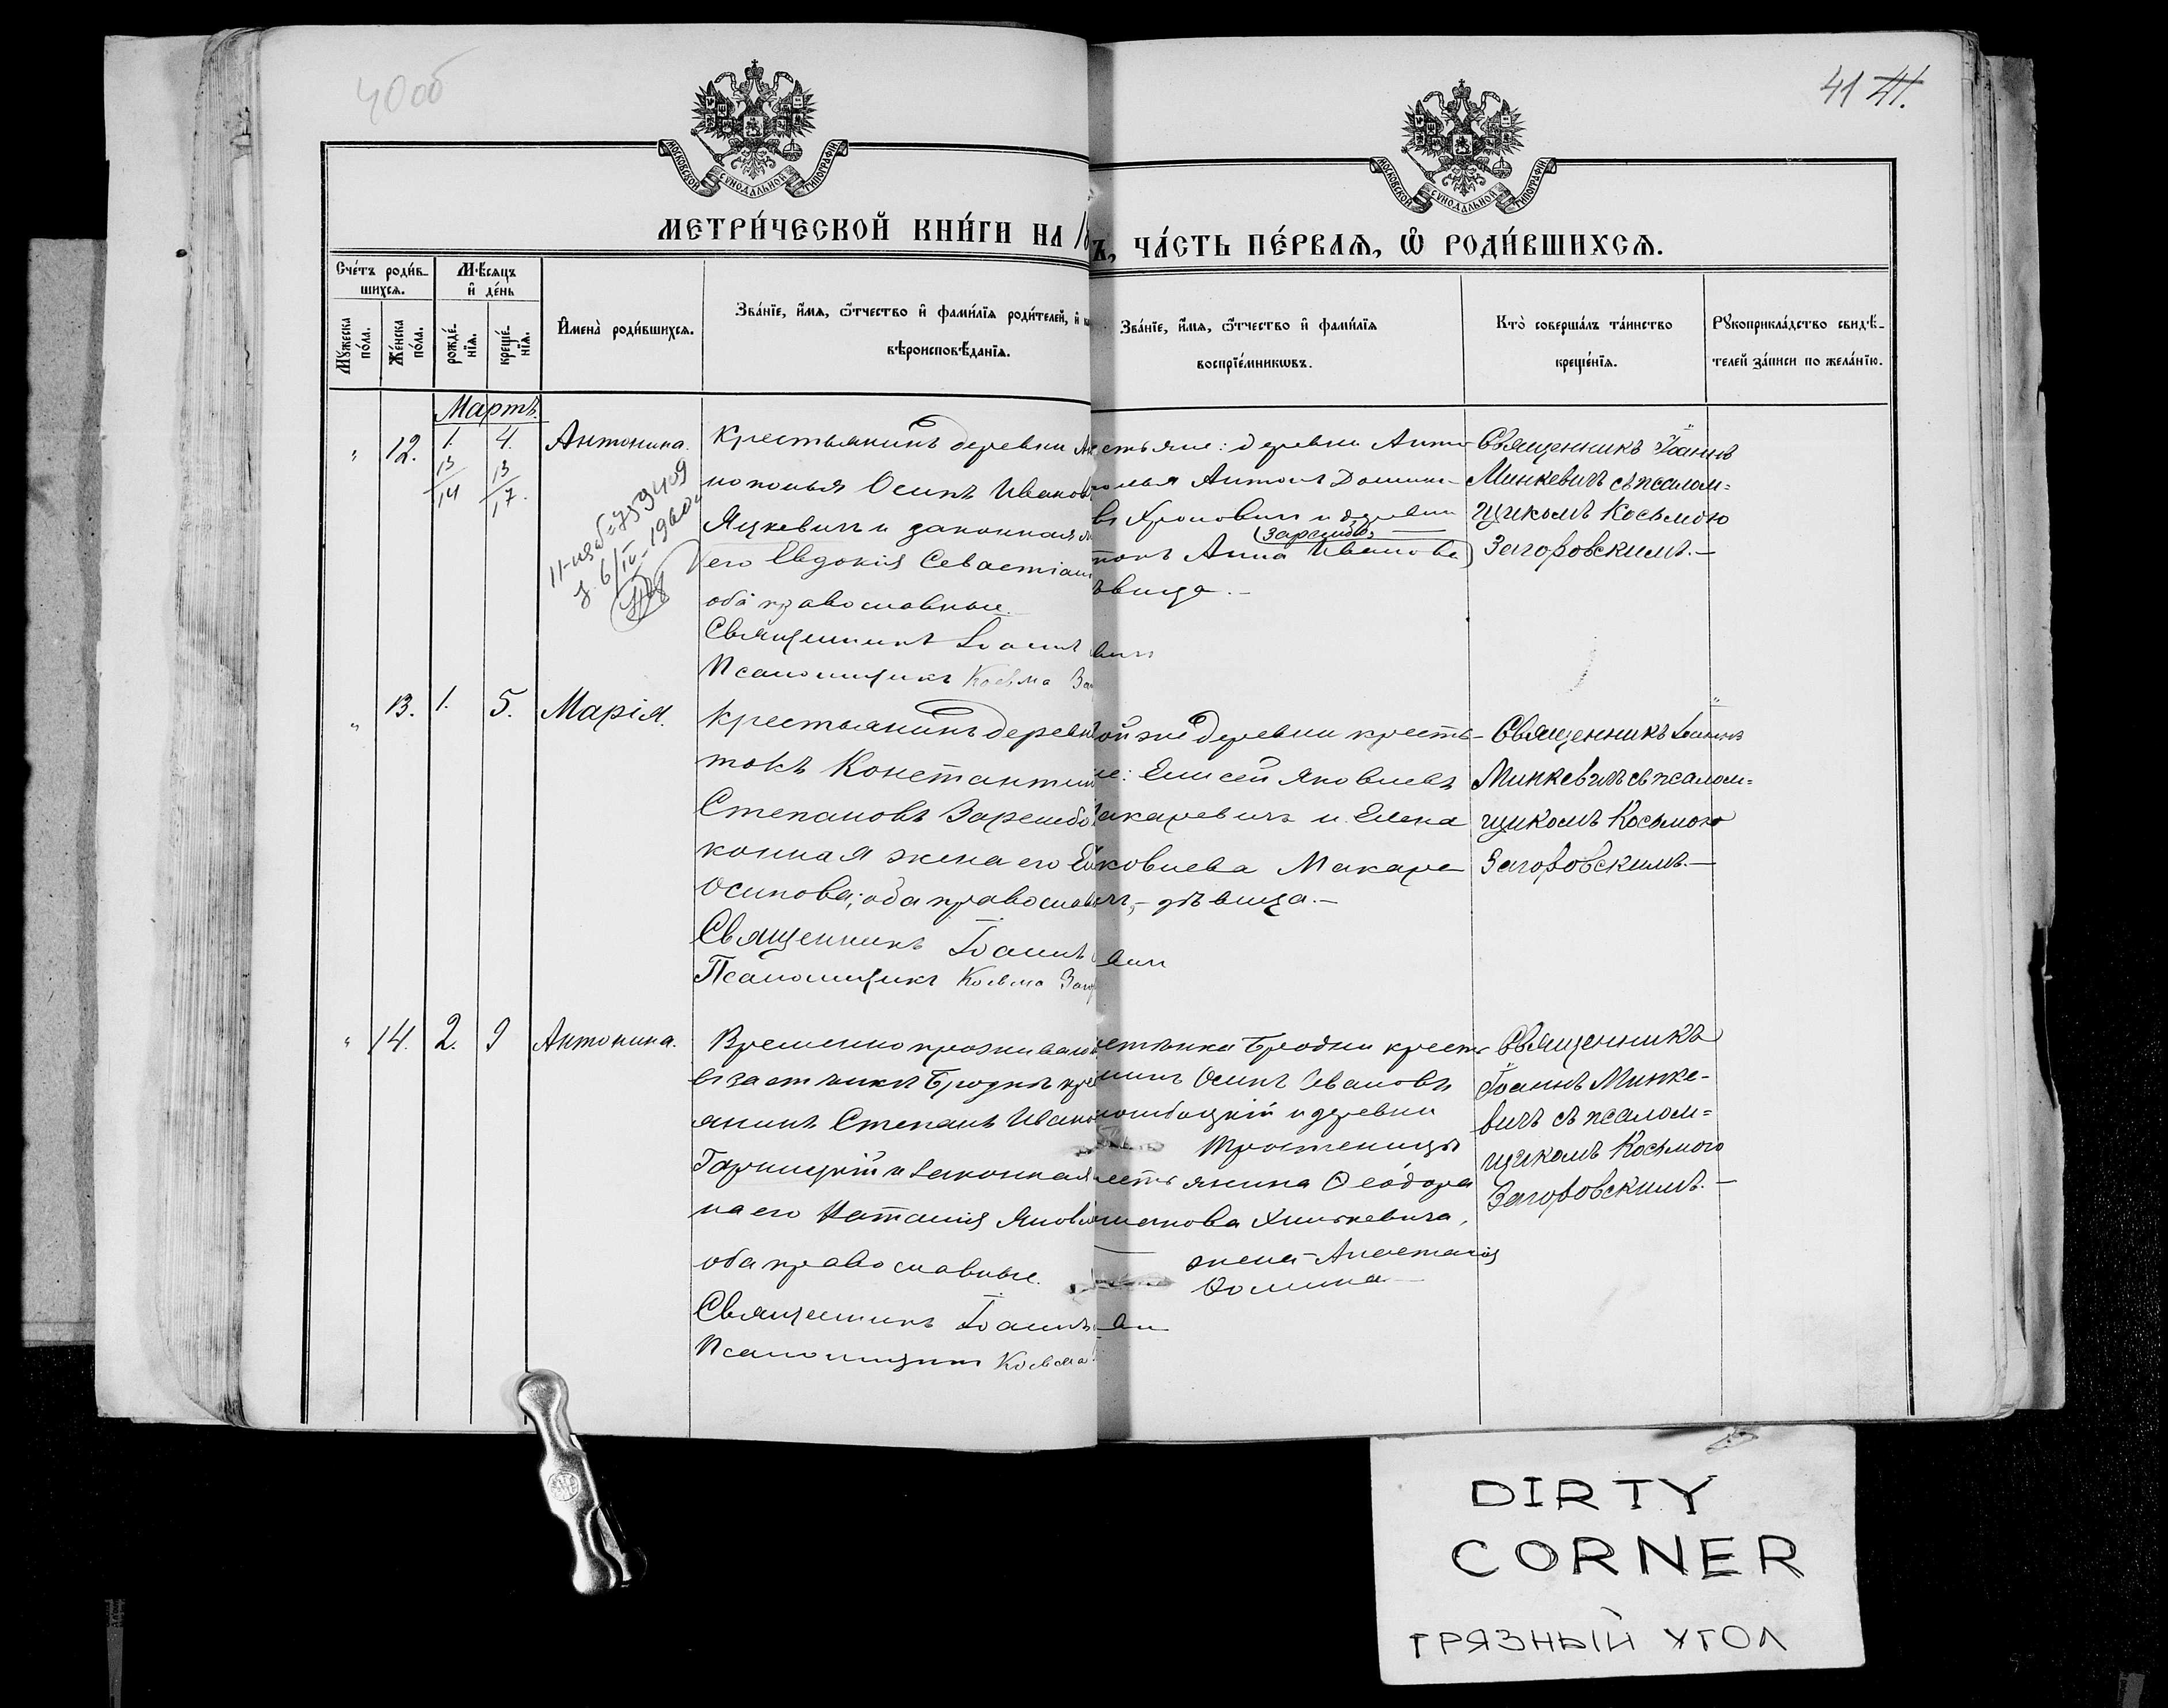 40об
41 41.
МОСКОВСКОЙ СѴНОДАЛЬНОЙ ТИПОГРАФІИ
МОСКОВСКОЙ СѴНОДАЛЬНОЙ ТИПОГРАФІИ
МЕТРИ́ЧЕСКОЙ КНИ́ГИ НА 18
Ъ, ЧА́СТЬ ПЕ́РВАЯ, Ѡ РОДИ́ВШИХСЯ.
Счétъ роди́в-
шихся.
Мѣсяцъ
и де́нь
Мꙋжеска по́ла.
Же́нска по́ла.
рожде́-
нїя.
креще́-
нїя.
Имена̀ роди́вшихся.
Зва́нїе, и́мя, ѻ́тчество и фами́лїя роди́телей, и
вѣроисповѣ́данїя.
Зва́нїе, и́мя, ѻ́тчество и фами́лїя
воспрїе́мникѡвъ.
Кто̀ соверша́лъ та́инство
креще́нїя.
Рꙋкоприкла́дство свидѣ́-
телей за́писи по жела́нїю.
Мартъ.
" 12. 1. 4. Антонина.
13/14 13/17.
11-няб=759409
6/IV-1960г
Крестьянинъ деревни Ан
нополья Осипъ Иванов
Яцкевичъ и законная
его Евдокія Севастіан
оба православные.
Священникъ Іоаннъ
Псаломщикъ Косьма За
естьяне: деревни Анно
олья Антонъ Домини
въ Хроповичъ и деревни
токъ Анна Иванова
ѣвица.
вичъ
Священникъ Іоаннъ
Минкевичъ съ псалом=
щикомъ Косьмою
Загоровскимъ.
" 13. 1. 5. Марія.
Крестьянинъ дерев
токъ Константин
Степановъ Зарембо
конная жена его
Осипова; оба правосла
Священникъ Іоаннъ
Псаломщикъ Косьма Заг
ой же деревни кресть-
не: Елисей Яковлевъ
акаревичъ и Елена
ковлева Макаре
чъ, - дѣвица.
вичъ
Священникъ Іоаннъ
Минкевичъ съ псалом=
щикомъ Косьмою
Загоровскимъ.
" 14. 2. 9 Антонина.
Временно прожива
въ застѣнкѣ Бродкѣ кре
янинъ Степанъ Ивано
Гарницкій и законная
на его Наталія Яковл
оба православные.
Священникъ Іоаннъ
Псаломщикъ Косьма
стѣнка Бродки кресть
нинъ Осипъ Ивановъ
и деревни
Тростеницы
естьянина Ѳеодора
жена Анастасія
Ѳомина
вич
Священникъ
Іоаннъ Минке-
вичъ съ псалом=
щикомъ Косьмою
Загоровскимъ.
DIRTY
CORNER
ГРЯЗНЫЙ УГОЛ